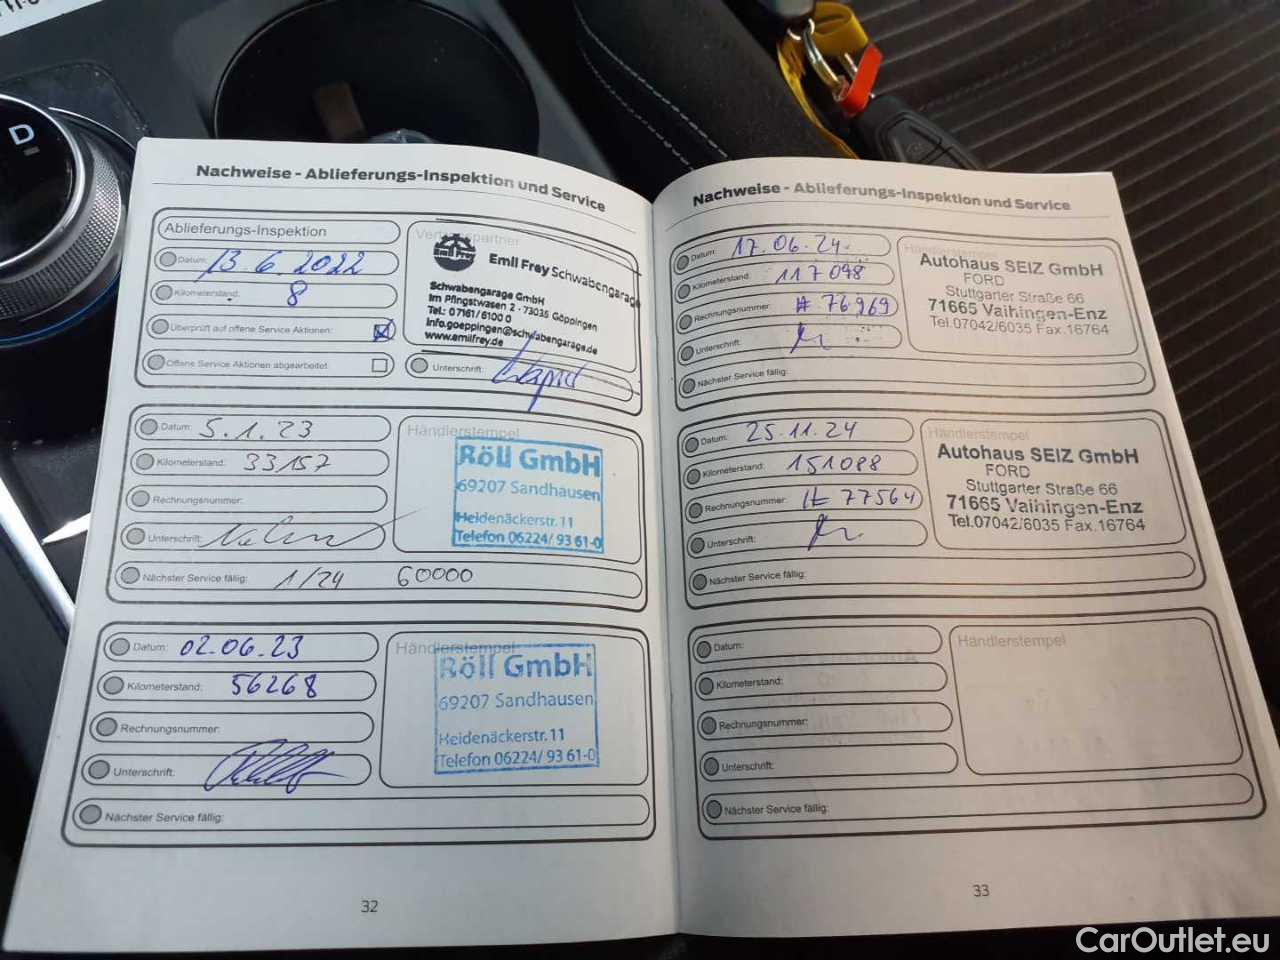 D
Nachweise - Ablieferungs-Inspektion und Service
Ablieferungs-Inspektion
Datum: 13.6.2022
Kilometerstand: 8
Überprüft auf offene Service Aktionen:
Offene Service Aktionen abgearbeitet:
Vertragspartner
Emil Frey
Emil Frey Schwabengarage
Schwabengarage GmbH
Im Pfingstwasen 2 · 73035 Göppingen
Tel.: 07161/6100 0
info.goeppingen@schwabengarage.de
www.emilfrey.de
Unterschrift:
Datum: 5.1.23
Kilometerstand: 33157
Rechnungsnummer:
Unterschrift:
Nächster Service fällig: 1/24 60000
Händlerstempel
Röll GmbH
69207 Sandhausen
Heidenäckerstr. 11
Telefon 06224/ 93 61-0
Datum: 02.06.23
Kilometerstand: 56268
Rechnungsnummer:
Unterschrift:
Nächster Service fällig:
Händlerstempel
Röll GmbH
69207 Sandhausen
Heidenäckerstr. 11
Telefon 06224/ 93 61-0
32
Nachweise - Ablieferungs-Inspektion und Service
Datum: 17.06.24.
Kilometerstand: 117098
Rechnungsnummer: # 76969
Unterschrift:
Nächster Service fällig:
Händlerstempel
Autohaus SEIZ GmbH
FORD
Stuttgarter Straße 66
71665 Vaihingen-Enz
Tel.07042/6035 Fax.16764
Datum: 25.11.24
Kilometerstand: 151088
Rechnungsnummer: # 77564
Unterschrift:
Nächster Service fällig:
Händlerstempel
Autohaus SEIZ GmbH
FORD
Stuttgarter Straße 66
71665 Vaihingen-Enz
Tel.07042/6035 Fax.16764
Datum:
Kilometerstand:
Rechnungsnummer:
Unterschrift:
Nächster Service fällig:
Händlerstempel
33
CarOutlet.eu